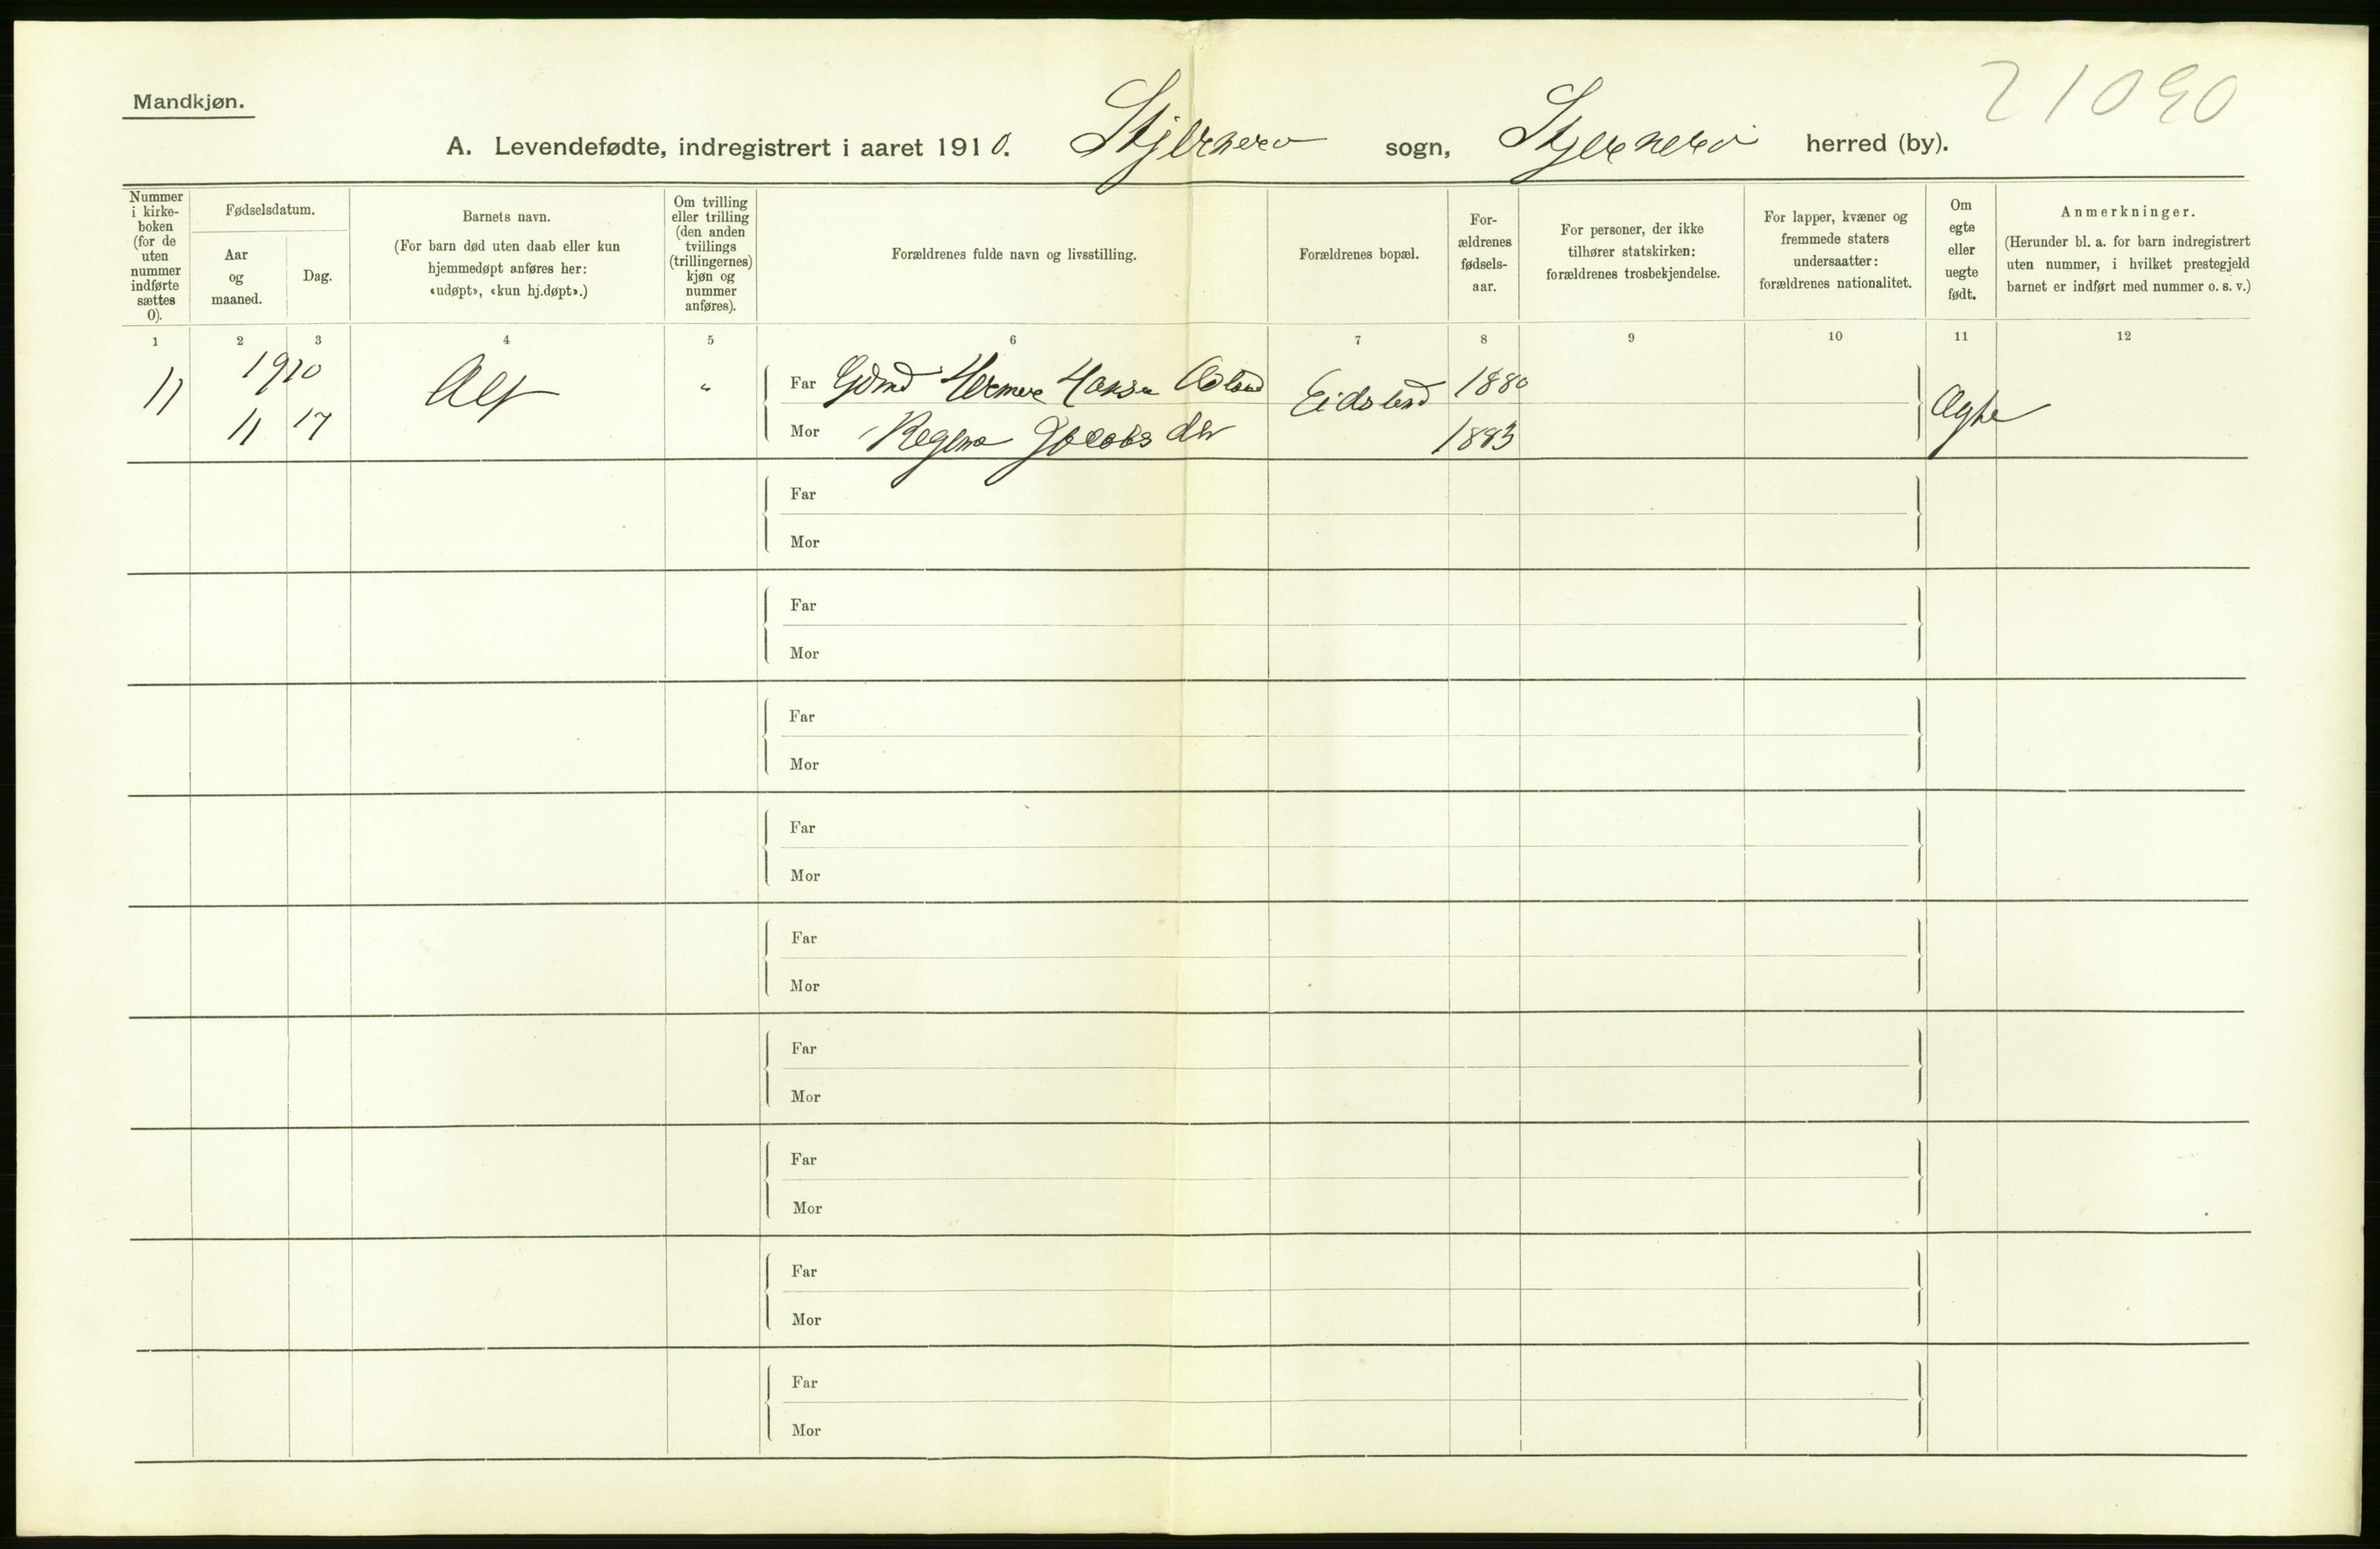 21090
Mandkjøn.
A. Levendefødte, indregistrert i aaret 1910. Skjernerø sogn, Skjernerø herred (by).
Nummer i kirke-boken (for de uten nummer indførte sættes 0).
Fødselsdatum.
Aar og maaned.
Dag.
Barnets navn.
(For barn død uten daab eller kun
hjemmedøpt anføres her:
«udøpt», «kun hj.døpt».)
Om tvilling
eller trilling
(den anden
tvillings
(trillingernes)
kjøn og
nummer
anføres).
Forældrenes fulde navn og livsstilling.
Forældrenes bopæl.
For-
ældrenes
fødsels-
aar.
For personer, der ikke
tilhører statskirken:
forældrenes trosbekjendelse.
For lapper, kvæner og
fremmede staters
undersaatter:
forældrenes nationalitet.
Om
egte
eller
uegte
født.
Anmerkninger.
(Herunder bl. a. for barn indregistrert
uten nummer, i hvilket prestegjeld
barnet er indført med nummer o. s. v.)
1 2 3 4 5 6 7 8 9 10 11 12
11 1910 Alf " Far Gbmd Hansen Eidsland 1880 Ægte
11 17 Mor Jacobsdtr 1883
Far
Mor
Far
Mor
Far
Mor
Far
Mor
Far
Mor
Far
Mor
Far
Mor
Far
Mor
Far
Mor